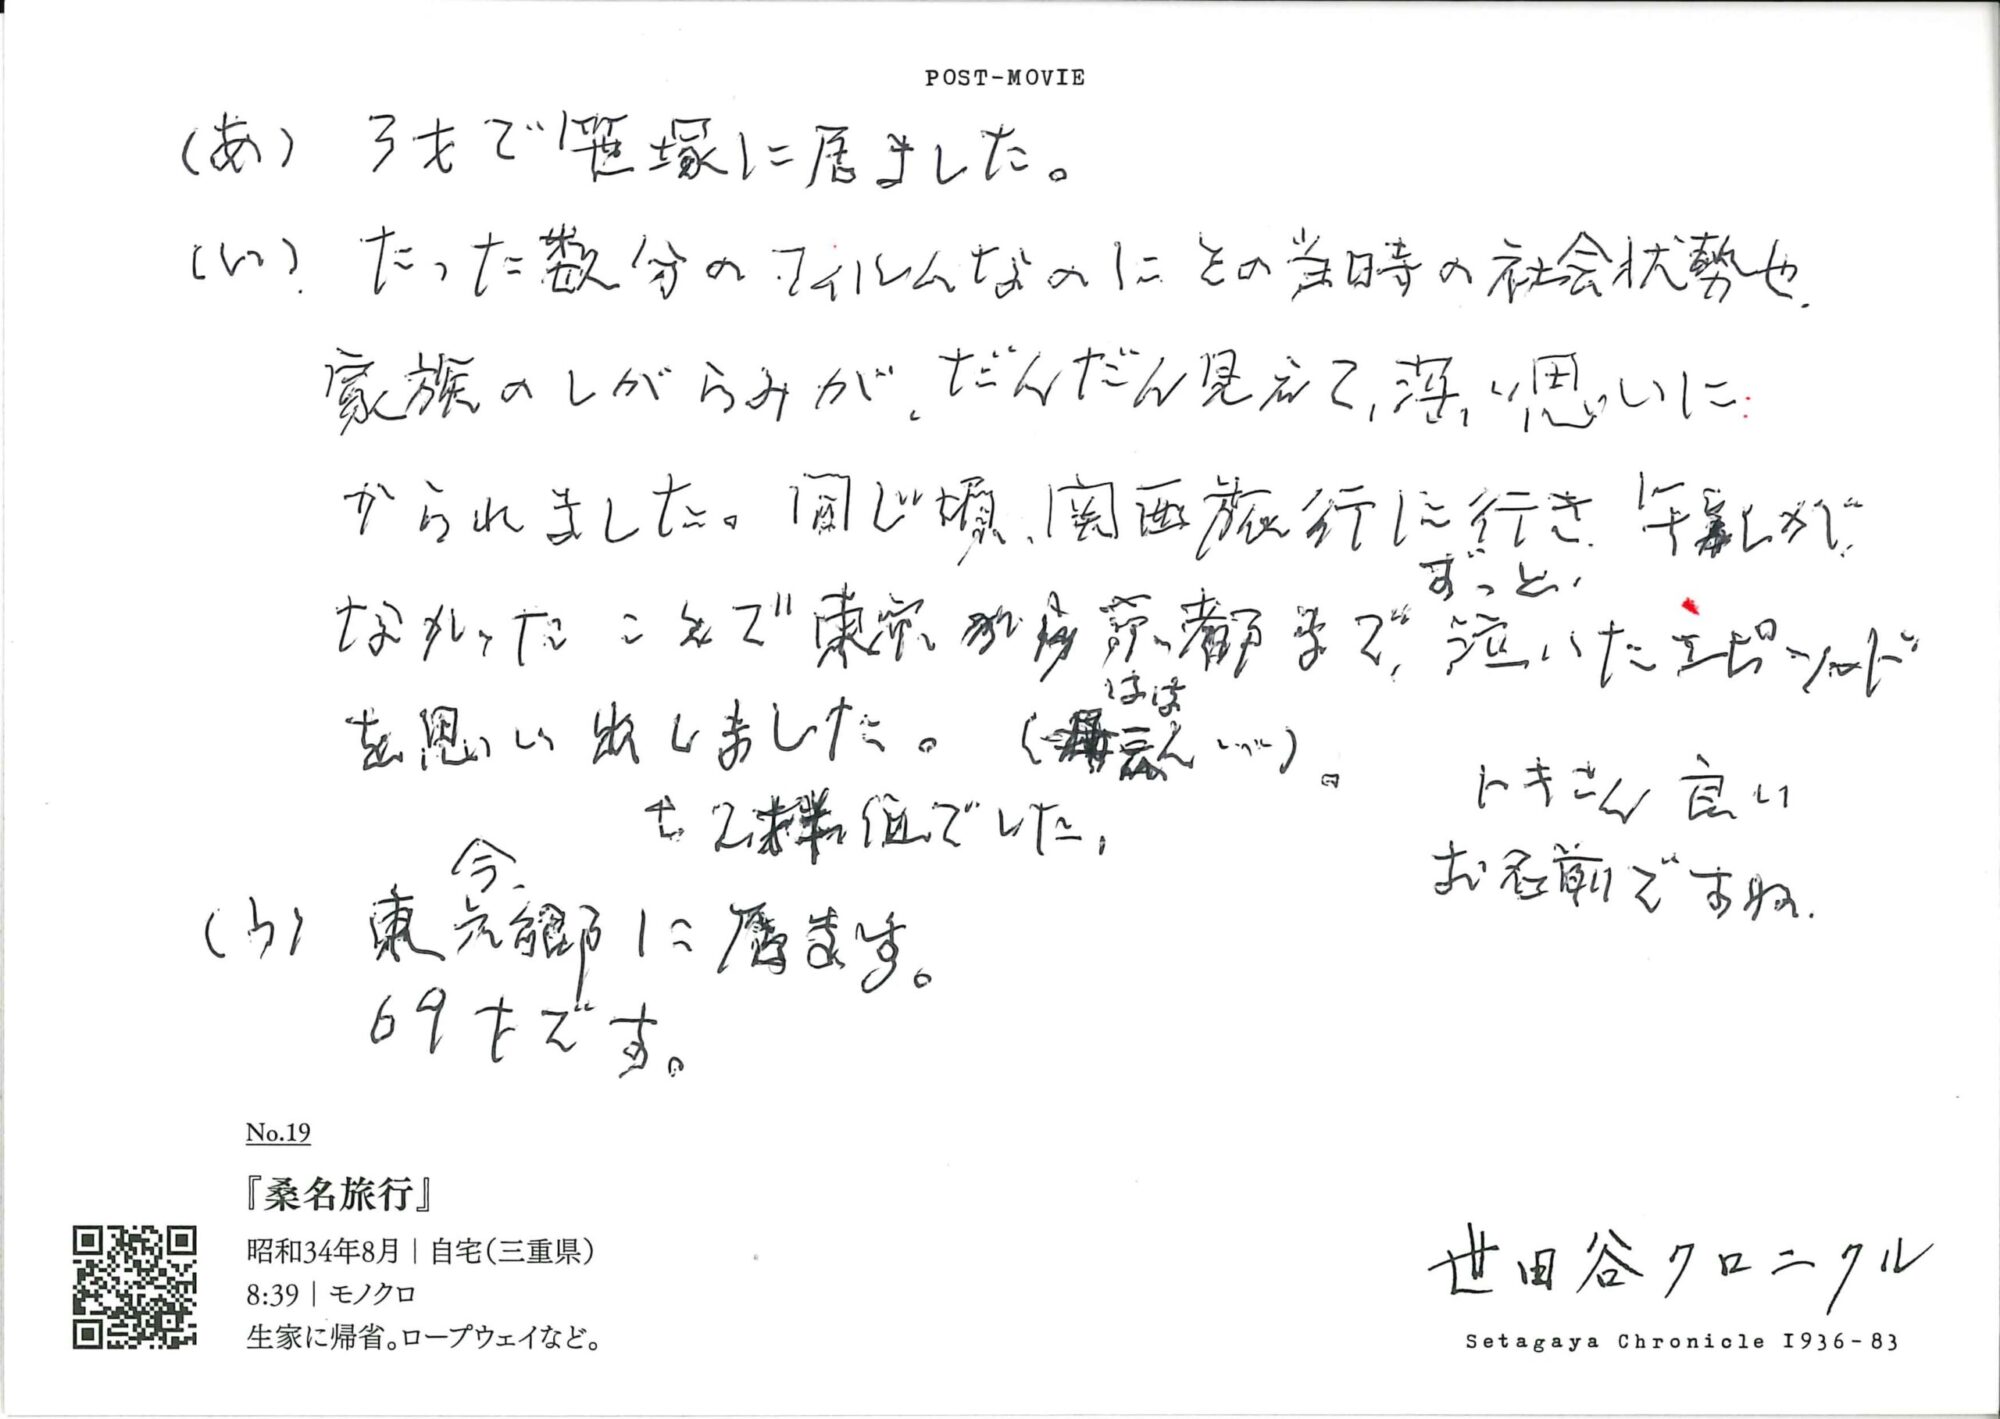 POST-MOVIE
(あ) 3才で笹塚に居ました。
(い) たった数分のフィルムなのにその当時の社会状勢や、
家族のしがらみが、だんだん見えて、深い思いに
かられました。同じ頃、関西旅行に行き、年齢しかで
ずっと、
なかったことで東京から京都まで、泣いたエピソード
はは
を思い出しました。(
でした、
トキさん 良い
お名前ですね。
今、
(う) 東京郷に居ます。
69才です。
No.19
『桑名旅行』
昭和34年8月|自宅(三重県)
8:39|モノクロ
生家に帰省。ロープウェイなど。
世田谷クロニクル
Setagaya Chronicle 1936-83